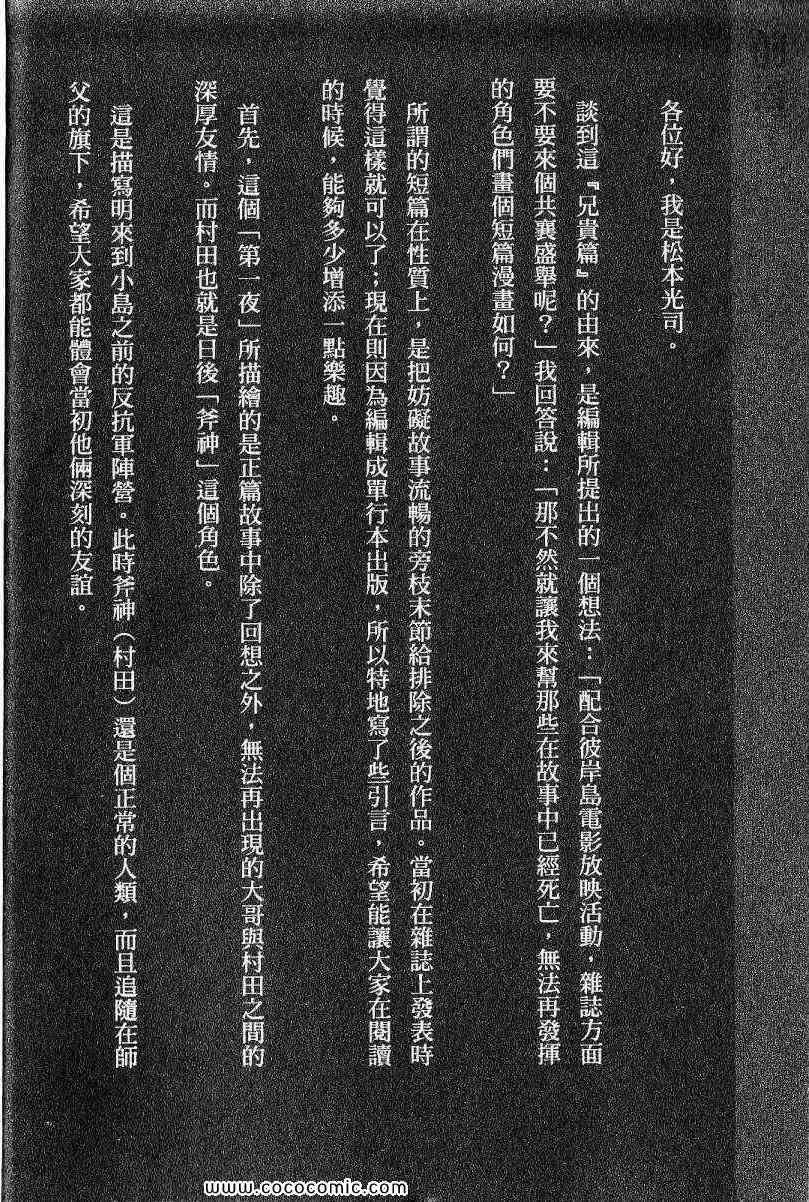 各位好，我是松本光司。
談到這『兄貴篇』的由來，是編輯所提出的一個想法：「配合彼岸島電影放映活動，雜誌方面
要不要來個共襄盛舉呢？」我回答說：「那不然就讓我來幫那些在故事中已經死亡，無法再發揮
的角色們畫個短篇漫畫如何？」
所謂的短篇在性質上，是把妨礙故事流暢的旁枝末節給排除之後的作品。當初在雜誌上發表時
覺得這樣就可以了；現在則因為編輯成單行本出版，所以特地寫了些引言，希望能讓大家在閱讀
的時候，能夠多少增添一點樂趣。
首先，這個「第一夜」所描繪的是正篇故事中除了回想之外，無法再出現的大哥與村田之間的
深厚友情。而村田也就是日後「斧神」這個角色。
這是描寫明來到小島之前的反抗軍陣營。此時斧神（村田）還是個正常的人類，而且追隨在師
父的旗下，希望大家都能體會當初他倆深刻的友誼。
www.cococomic.com